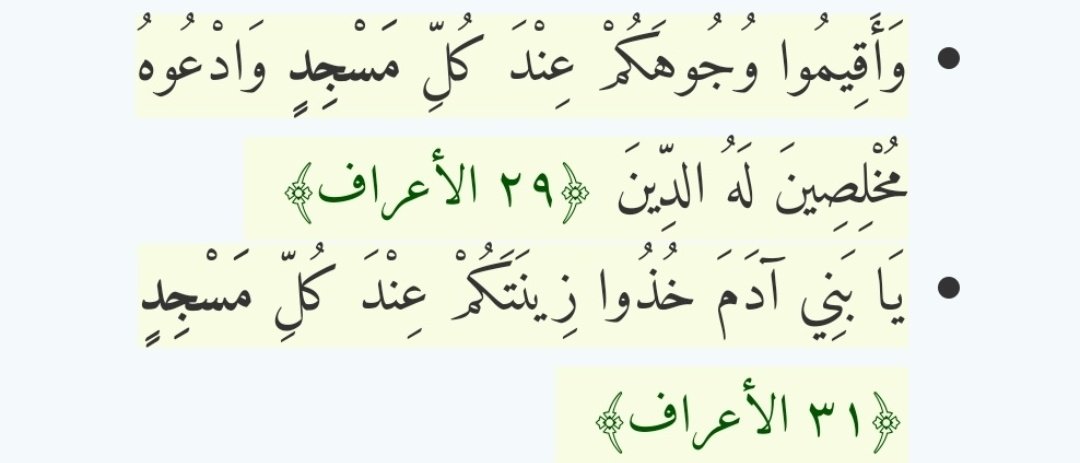 • وَأَقِيمُوا وُجُوهَكُمْ عِنْدَ كُلِّ مَسْجِدٍ وَادْعُوهُ
مُخْلِصِينَ لَهُ الدِّينَ ﴿٢٩ الأعراف﴾
• يَا بَنِي آدَمَ خُذُوا زِينَتَكُمْ عِنْدَ كُلِّ مَسْجِدٍ
﴿٣١ الأعراف﴾